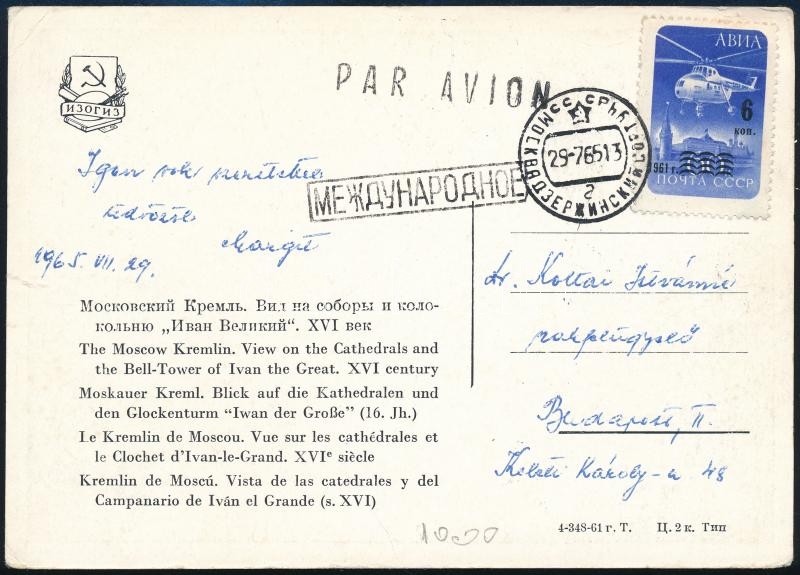 PAR AVION
АВИА
6
коп.
1961 г.
ПОЧТА СССР
ИЗОГИЗ
МОСКВА ДЗЕРЖИНСКИЙ
29-7 65 13
г
МЕЖДУНАРОДНОЕ
Igen sok
Margit
1965. VII. 29.
Московский Кремль. Вид на соборы и коло-
кольню „Иван Великий“. XVI век
The Moscow Kremlin. View on the Cathedrals and
the Bell-Tower of Ivan the Great. XVI century
Moskauer Kreml. Blick auf die Kathedralen und
den Glockenturm “Iwan der Große” (16. Jh.)
Le Kremlin de Moscou. Vue sur les cathédrales et
le Clochet d'Ivan-le-Grand. XVIe siècle
Kremlin de Moscú. Vista de las catedrales y del
Campanario de Iván el Grande (s. XVI)
Dr. Kottai Istvánné
Budapest, II.
Keleti Károly-u 48
4-348-61 г. Т. Ц. 2 к. Тип
1000